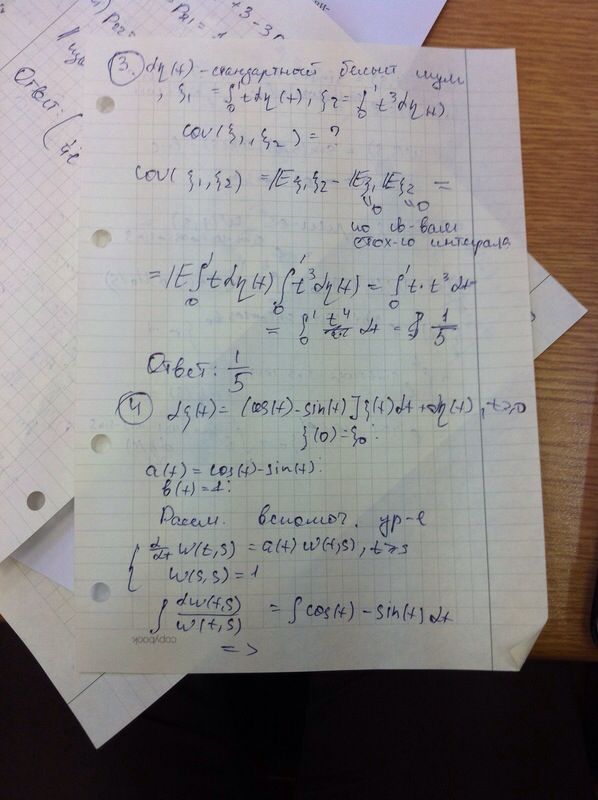 +3-3
P22=
P21=1
Ответ: (
3. dη(t) - стандартный белый шум
, ξ₁ = ∫₀¹ t dη(t), ξ₂ = ∫₀¹ t³ dη(t)
cov(ξ₁, ξ₂) = ?
cov(ξ₁, ξ₂) = Eξ₁ξ₂ - Eξ₁ Eξ₂ =
"0 "0
по св-вам
стох-го интеграла
= E∫₀¹ t dη(t) ∫₀¹ t³ dη(t) = ∫₀¹ t · t³ dt =
= ∫₀¹ t⁴ dt = 1/5
Ответ: 1/5
4 dξ(t) = [cos(t) - sin(t)] ξ(t) dt + dη(t), t ≥ 0
ξ(0) = ξ₀
a(t) = cos(t) - sin(t)
b(t) = 1
Рассм. вспомог. ур-е
{ d/dt W(t,s) = a(t) W(t,s), t ≥ s
W(s,s) = 1
∫ dW(t,s)/W(t,s) = ∫ cos(t) - sin(t) dt
=>
copybook